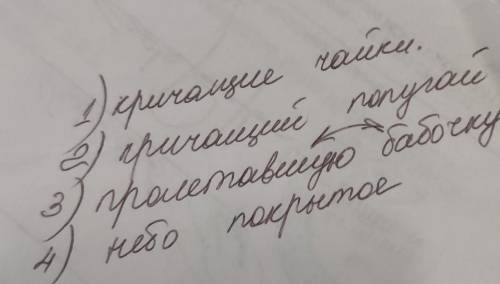 1) кричащие чайки.
2) кричащий попугай
3) пролетавшую бабочку
4) небо покрытое